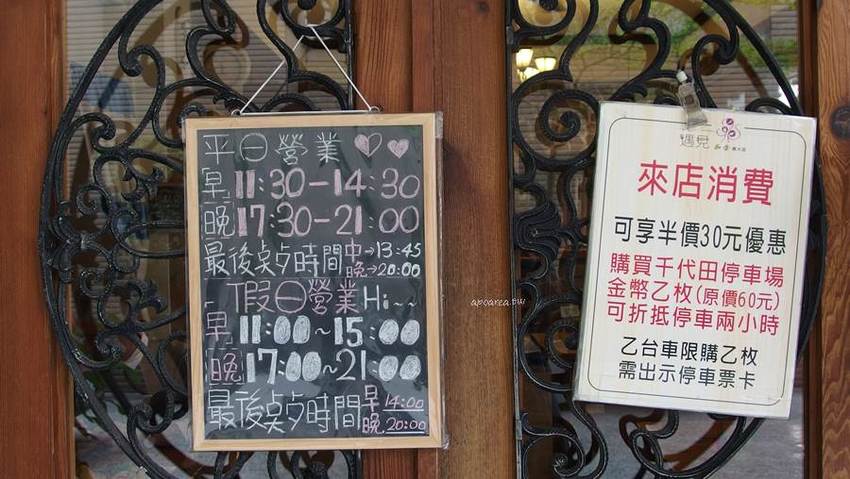 平日營業
早 11:30-14:30
晚 17:30-21:00
最後點時間 中→13:45
晚→20:00
假日營業 Hi~~
早 11:00~15:00
晚 17:00~21:00
最後點時間 早 14:00
晚 20:00
apoarea.tw
遇見
來店消費
可享半價30元優惠
購買千代田停車場
金幣乙枚(原價60元)
可折抵停車兩小時
乙台車限購乙枚
需出示停車票卡